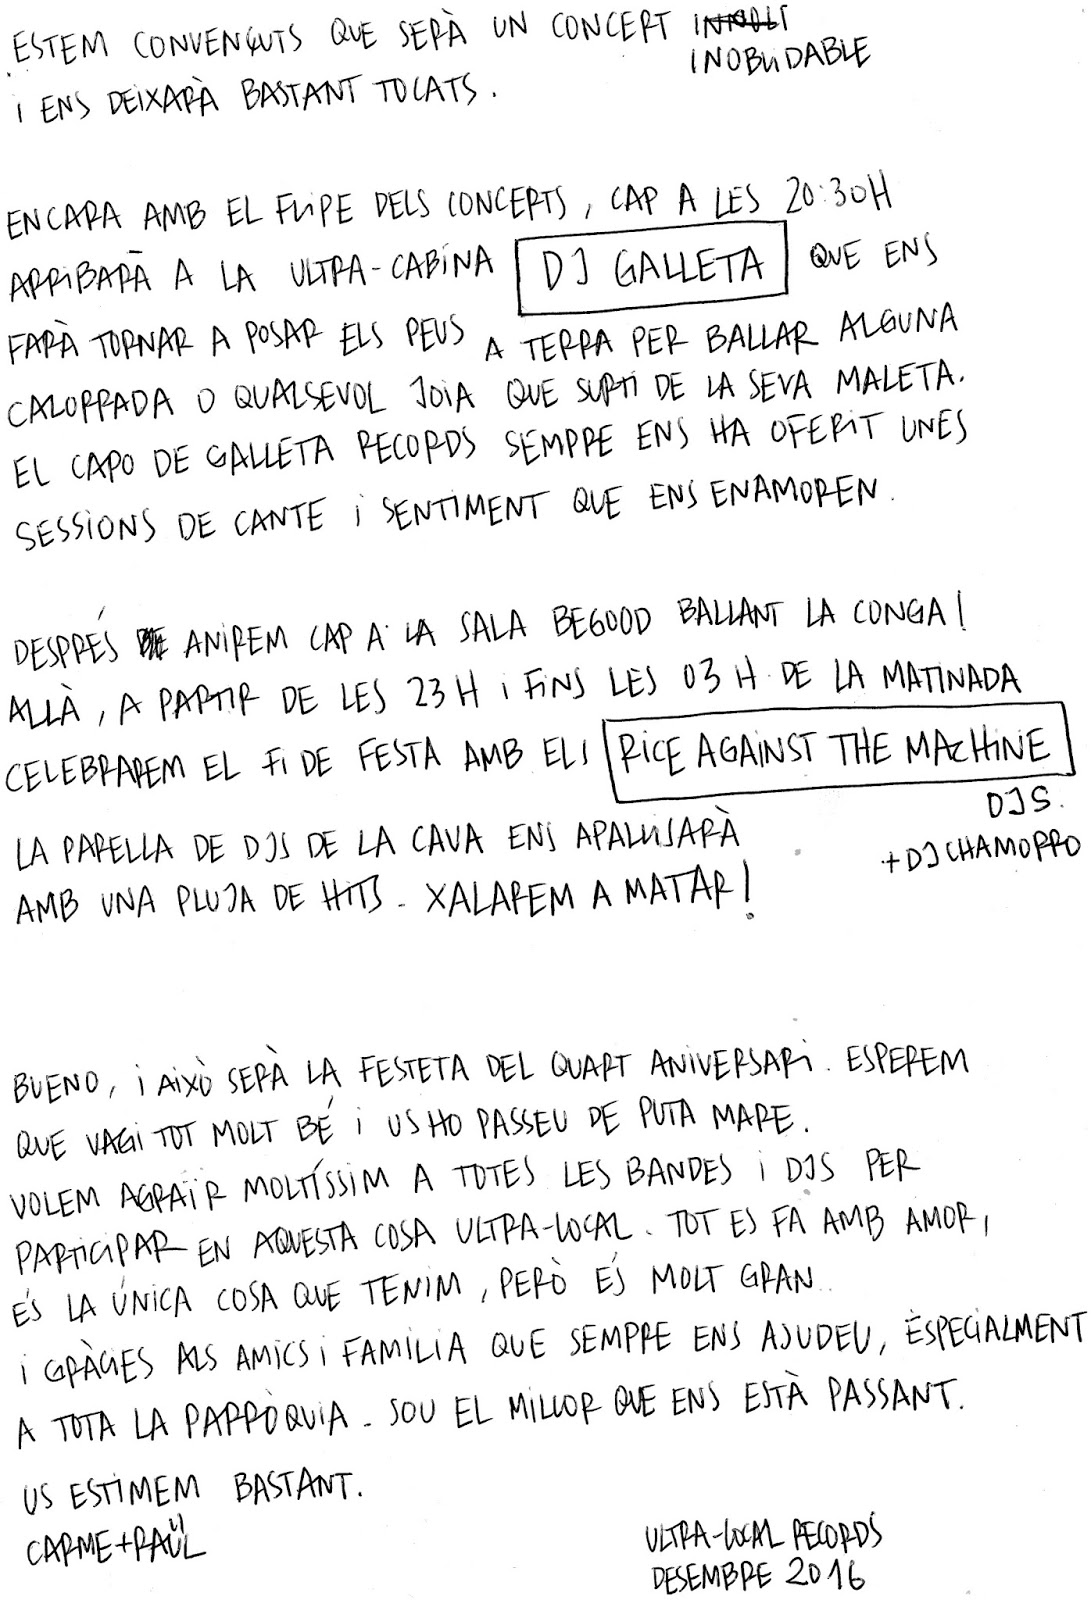 ESTEM CONVENÇUTS QUE SERÀ UN CONCERT
INOBLIDABLE
I ENS DEIXARÀ BASTANT TOCATS.
ENCARA AMB EL FLIPE DELS CONCERTS, CAP A LES 20:30H
ARRIBARÀ A LA ULTRA-CABINA DJ GALLETA QUE ENS
FARÀ TORNAR A POSAR ELS PEUS A TERRA PER BALLAR ALGUNA
CALORRADA O QUALSEVOL JOIA QUE SURTI DE LA SEVA MALETA.
EL CAPO DE GALLETA RECORDS SEMPRE ENS HA OFERIT UNES
SESSIONS DE CANTE I SENTIMENT QUE ENS ENAMOREN.
DESPRÉS ANIREM CAP A LA SALA BEGOOD BALLANT LA CONGA!
ALLÀ, A PARTIR DE LES 23H I FINS LES 03H DE LA MATINADA
CELEBRAREM EL FI DE FESTA AMB ELS RICE AGAINST THE MACHINE
DJS.
+DJ CHAMORRO
LA PARELLA DE DJS DE LA CAVA ENS APALLISARÀ
AMB UNA PLUJA DE HITS. XALAREM A MATAR!
BUENO, I AIXÒ SERÀ LA FESTETA DEL QUART ANIVERSARI. ESPEREM
QUE VAGI TOT MOLT BÉ I US HO PASSEU DE PUTA MARE.
VOLEM AGRAÏR MOLTÍSSIM A TOTES LES BANDES I DJS PER
PARTICIPAR EN AQUESTA COSA ULTRA-LOCAL. TOT ES FA AMB AMOR,
ÉS LA ÚNICA COSA QUE TENIM, PERÒ ÉS MOLT GRAN..
I GRÀCIES ALS AMICS I FAMÍLIA QUE SEMPRE ENS AJUDEU, ESPECIALMENT
A TOTA LA PARRÒQUIA. SOU EL MILLOR QUE ENS ESTÀ PASSANT.
US ESTIMEM BASTANT.
CARME+RAÜL
ULTRA-LOCAL RECORDS
DESEMBRE 2016